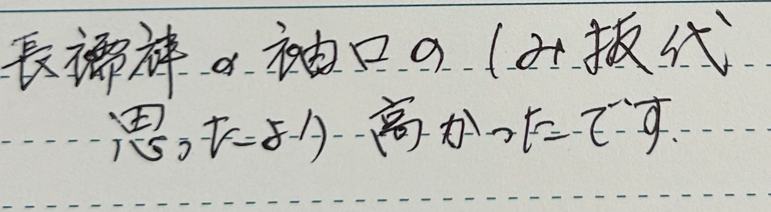 長襦袢の袖口のしみ抜代
思ったより高かったです.